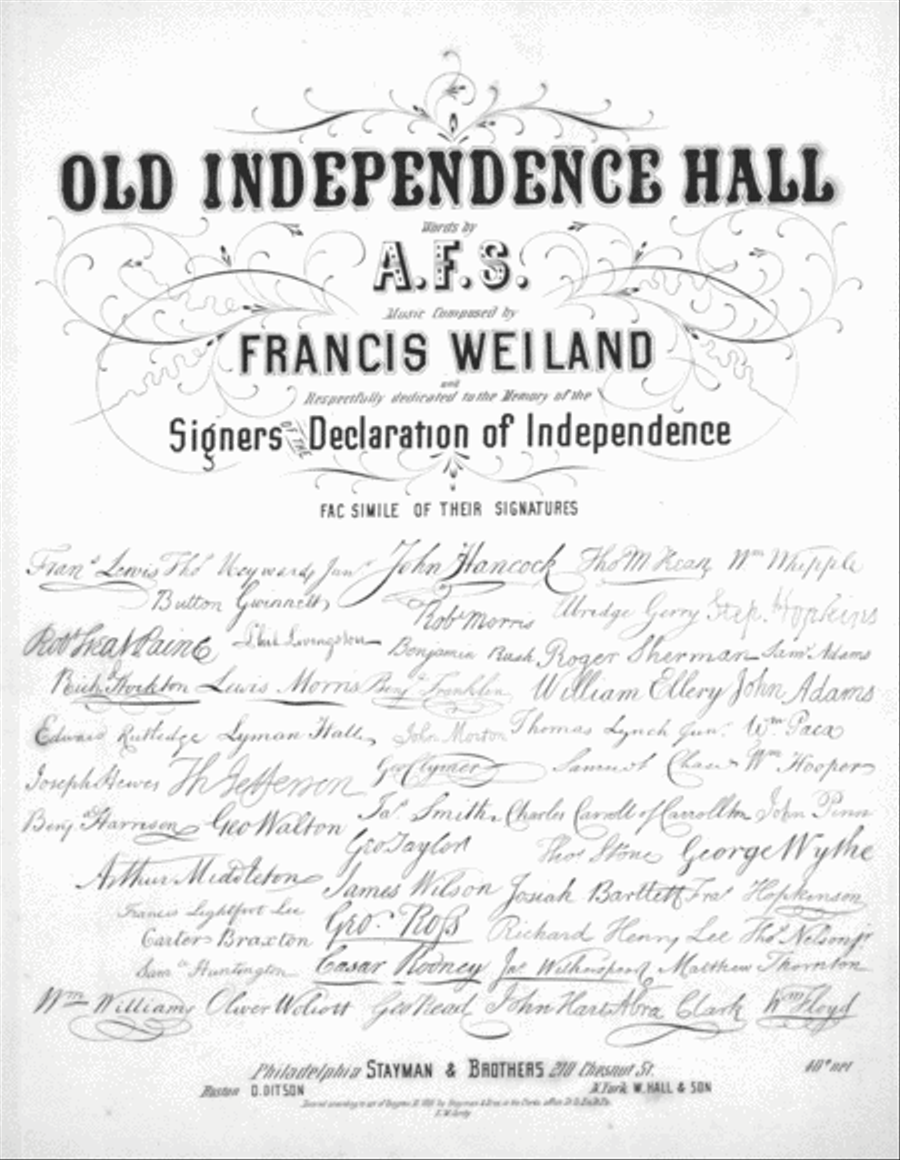 OLD INDEPENDENCE HALL
Words by
A.F.S.
Music Composed by
FRANCIS WEILAND
and
Respectfully dedicated to the Memory of the
Signers OF THE Declaration of Independence
FAC SIMILE OF THEIR SIGNATURES
Frans Lewis Thos Heyward Junr John Hancock Thos M Kean Wm Whipple
Button Gwinnett Robt Morris Elbridge Gerry Step. Hopkins
Robt Treat Paine Phil Livingston Benjamin Rush Roger Sherman Saml Adams
Richd Stockton Lewis Morris Benj Franklin William Ellery John Adams
Edward Rutledge Lyman Hall John Morton Thomas Lynch Junr Wm Paca
Joseph Hewes Th Jefferson Geo Clymer Samuel Chase Wm Hooper
Benj Harrison Geo Walton Jas Smith. Charles Carroll of Carrollton John Penn
Geo Taylor Thos Stone George Wythe
Arthur Middleton James Wilson Josiah Bartlett Fras Hopkinson
Francis Lightfoot Lee Geo. Ross Richard Henry Lee Thos Nelson jr
Carter Braxton
Saml Huntington Cæsar Rodney Jno Witherspoon Matthew Thornton
Wm Williams Oliver Wolcott Geo Read John Hart Abra Clark Wm Floyd
Philadelphia STAYMAN & BROTHERS 210 Chesnut St.
40 net
Boston O. DITSON N. York W. HALL & SON